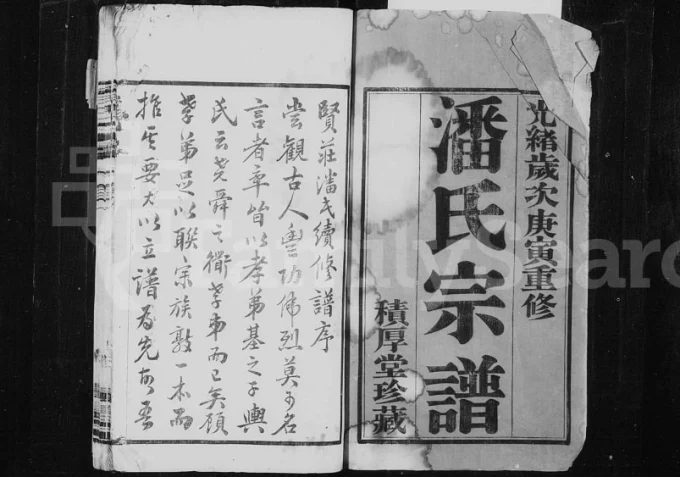 光緒歲次庚寅重修
潘氏宗譜
積厚堂珍藏
賢莊潘氏續修譜序
嘗觀古人豐功偉烈莫可名
言者率皆以孝弟基之子輿
氏云堯舜之道孝弟而已矣顧
孝弟足以聯宗族敦一本而
推其要大以立譜為先而吾
FamilySearch